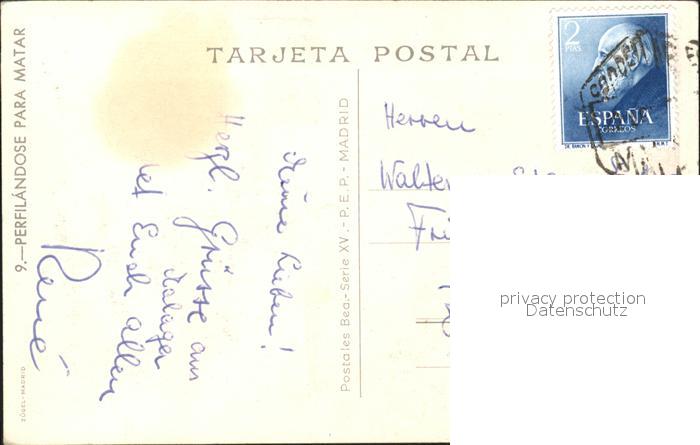 TARJETA POSTAL
9.—PERFILÁNDOSE PARA MATAR
ZÜGEL-MADRID
Meine Lieben!
Herzl. Grüsse aus
Malaga
Euch allen
René
Postales Bea.- Serie XV. - P. E. P. - MADRID
2
PTAS
ESPAÑA
CORREOS
CORREO
Herren
Walter
Fri
privacy protection
Datenschutz